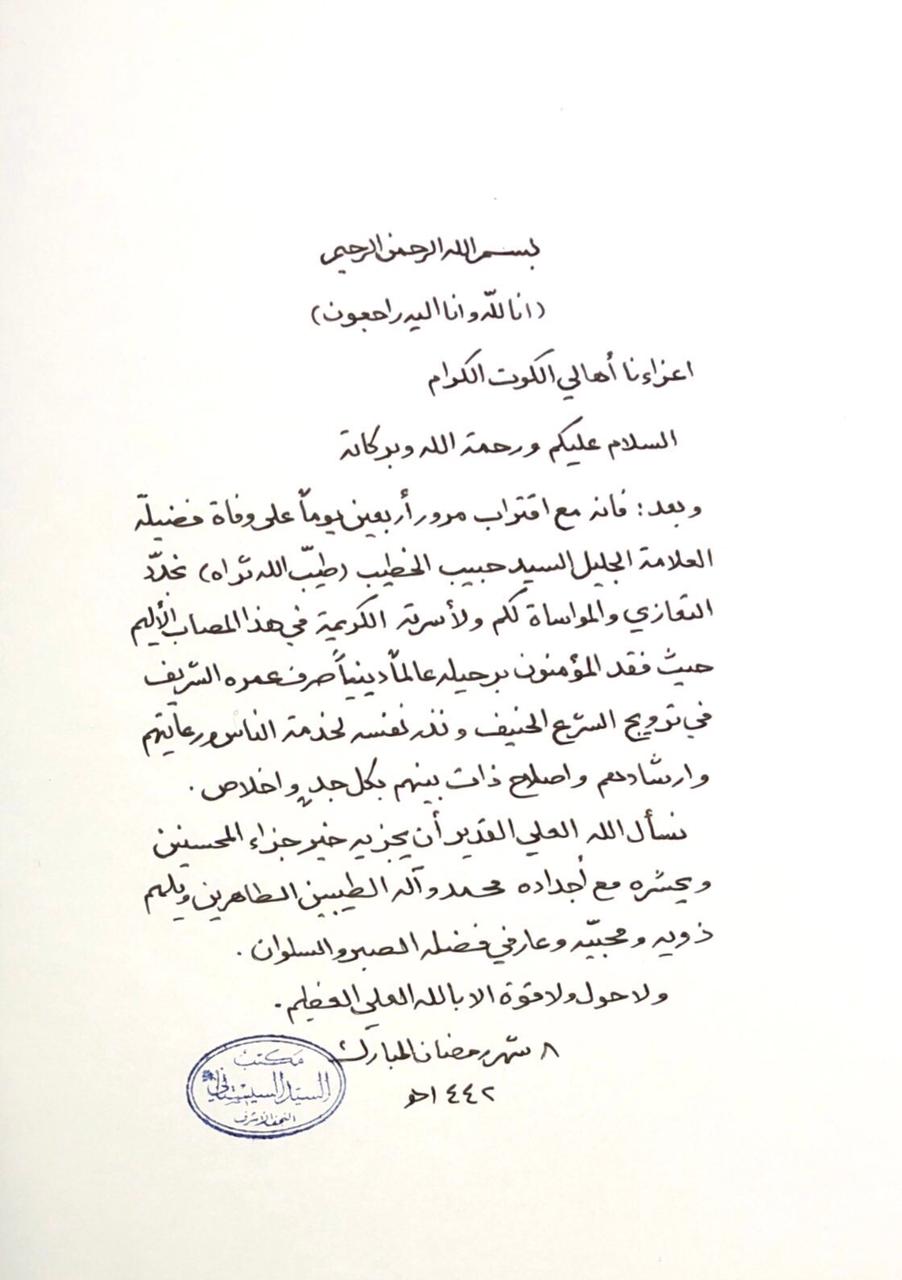 بسم الله الرحمن الرحيم
(انا لله وانا اليه راجعون)
اعزاءنا أهالي الكوت الكرام
السلام عليكم ورحمة الله وبركاته
وبعد: فانه مع اقتراب مرور أربعين يوماً على وفاة فضيلة
العلامة الجليل السيد حبيب الخطيب (طيّب الله ثراه) نجدّد
التعازي والمواساة لكم ولأسرته الكريمة في هذا المصاب الأليم
حيث فقد المؤمنون برحيله عالماً دينياً صرف عمره الشريف
في ترويج الشرع الحنيف ونذر نفسه لخدمة الناس ورعايتهم
وارشادهم واصلاح ذات بينهم بكل جدٍ واخلاص.
نسأل الله العلي القدير أن يجزيه خير جزاء المحسنين
ويحشره مع أجداده محمد وآله الطيبين الطاهرين ويلهم
ذويه ومحبيّه وعارفي فضله الصبر والسلوان.
ولا حول ولا قوة الا بالله العلي العظيم.
٨ شهر رمضان المبارك
١٤٤٢هـ
مكتب
السيد السيستاني
النجف الأشرف